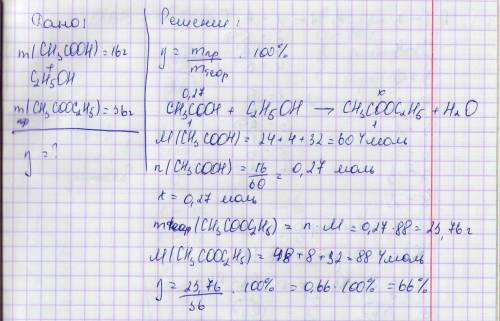 Дано:
m(CH₃COOH)=16г
+
C₂H₅OH
m(CH₃COOC₂H₅)=36г
пр
y=?
Решение:
y = mпр / mтеор · 100%
0,27 x
CH₃COOH + C₂H₅OH → CH₃COOC₂H₅ + H₂O
1 1
M(CH₃COOH) = 24+4+32=60 г/моль
n(CH₃COOH) = 16/60 = 0,27 моль
x = 0,27 моль
mтеор(CH₃COOC₂H₅) = n·M = 0,27·88 = 23,76 г
M(CH₃COOC₂H₅) = 48+8+32=88 г/моль
y = 23,76/36 · 100% = 0,66·100% = 66%